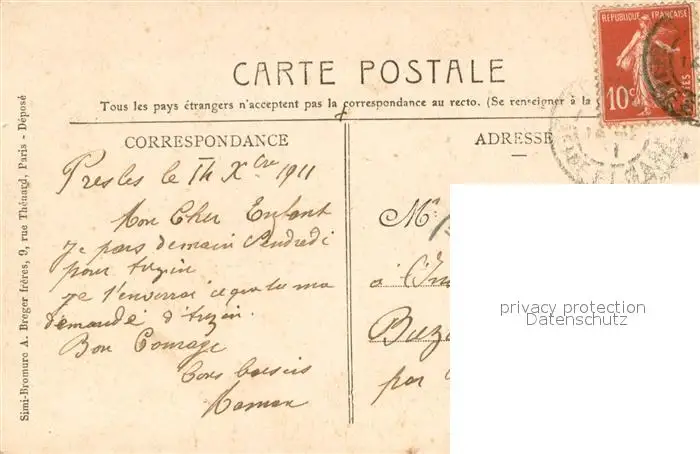 RÉPUBLIQUE FRANÇAISE
10c
CARTE POSTALE
Tous les pays étrangers n'acceptent pas la correspondance au recto. (Se renseigner à la
CORRESPONDANCE
Presles le 14 Xbre 1911
Mon Cher Enfant
Je pars demain Vendredi
pour
je t'enverrai ce que tu ma
demandé d'
Bon Courage
Bons baisers
Maman
ADRESSE
Mr
à
Buz
par
privacy protection
Datenschutz
Simi-Bromure A. Breger frères, 9, rue Thénard, Paris - Déposé